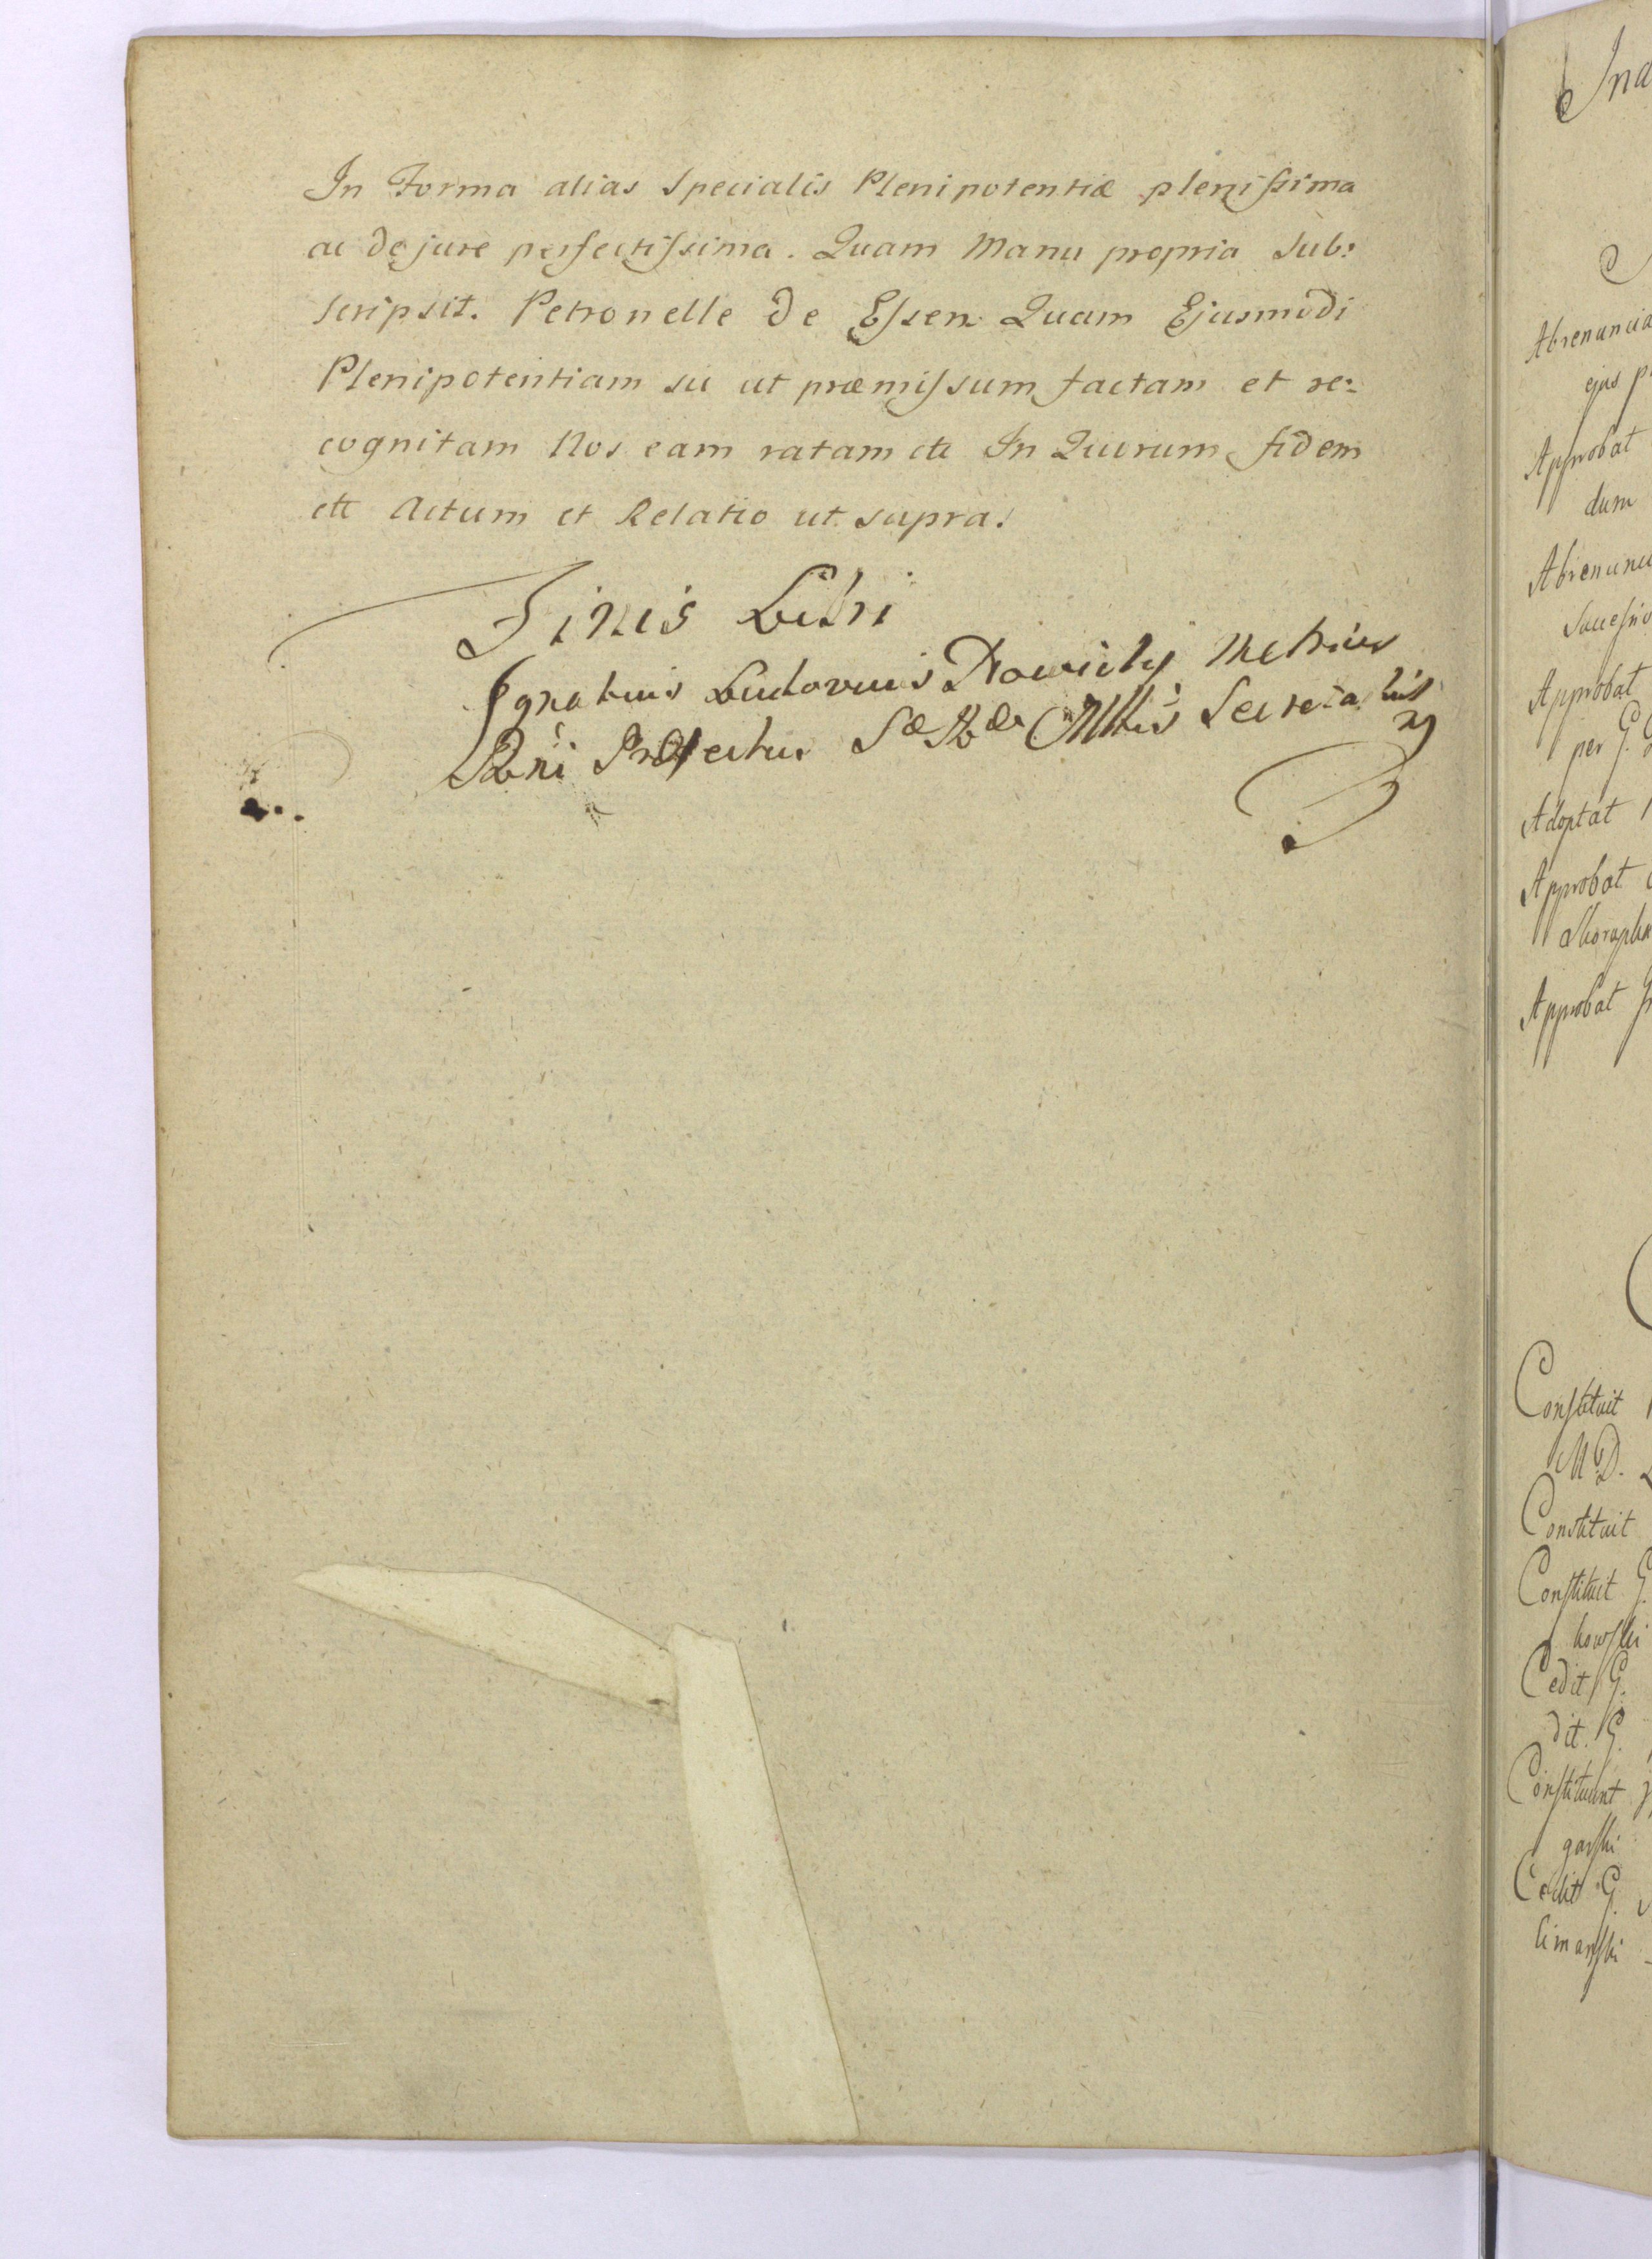 In Forma alias Specialis Plenipotentiæ plenissima
ac de jure perfectissima. Quam Manu propria Sub:
scripsit. Petronelle de Essen Quam Ejusmodi
Plenipotentiam sic ut præmissum factam et re:
cognitam Nos eam ratam etc In Quorum fidem
etc Actum et Relatio ut supra.
Finis Libri
Ignatius Ludovicus Nowicky Metrices
Regni Præfectus Secretarius
Ind
Abrenuncia
ejus
Approbat
dum
Abrenunc
Approbat
per G.
Adoptat
Approbat
Approbat
Constituit
M D.
Constituit
Constituit G.
kowski
Cedit G.
dit. G.
Constituunt
garski
Cedit G.
limanski